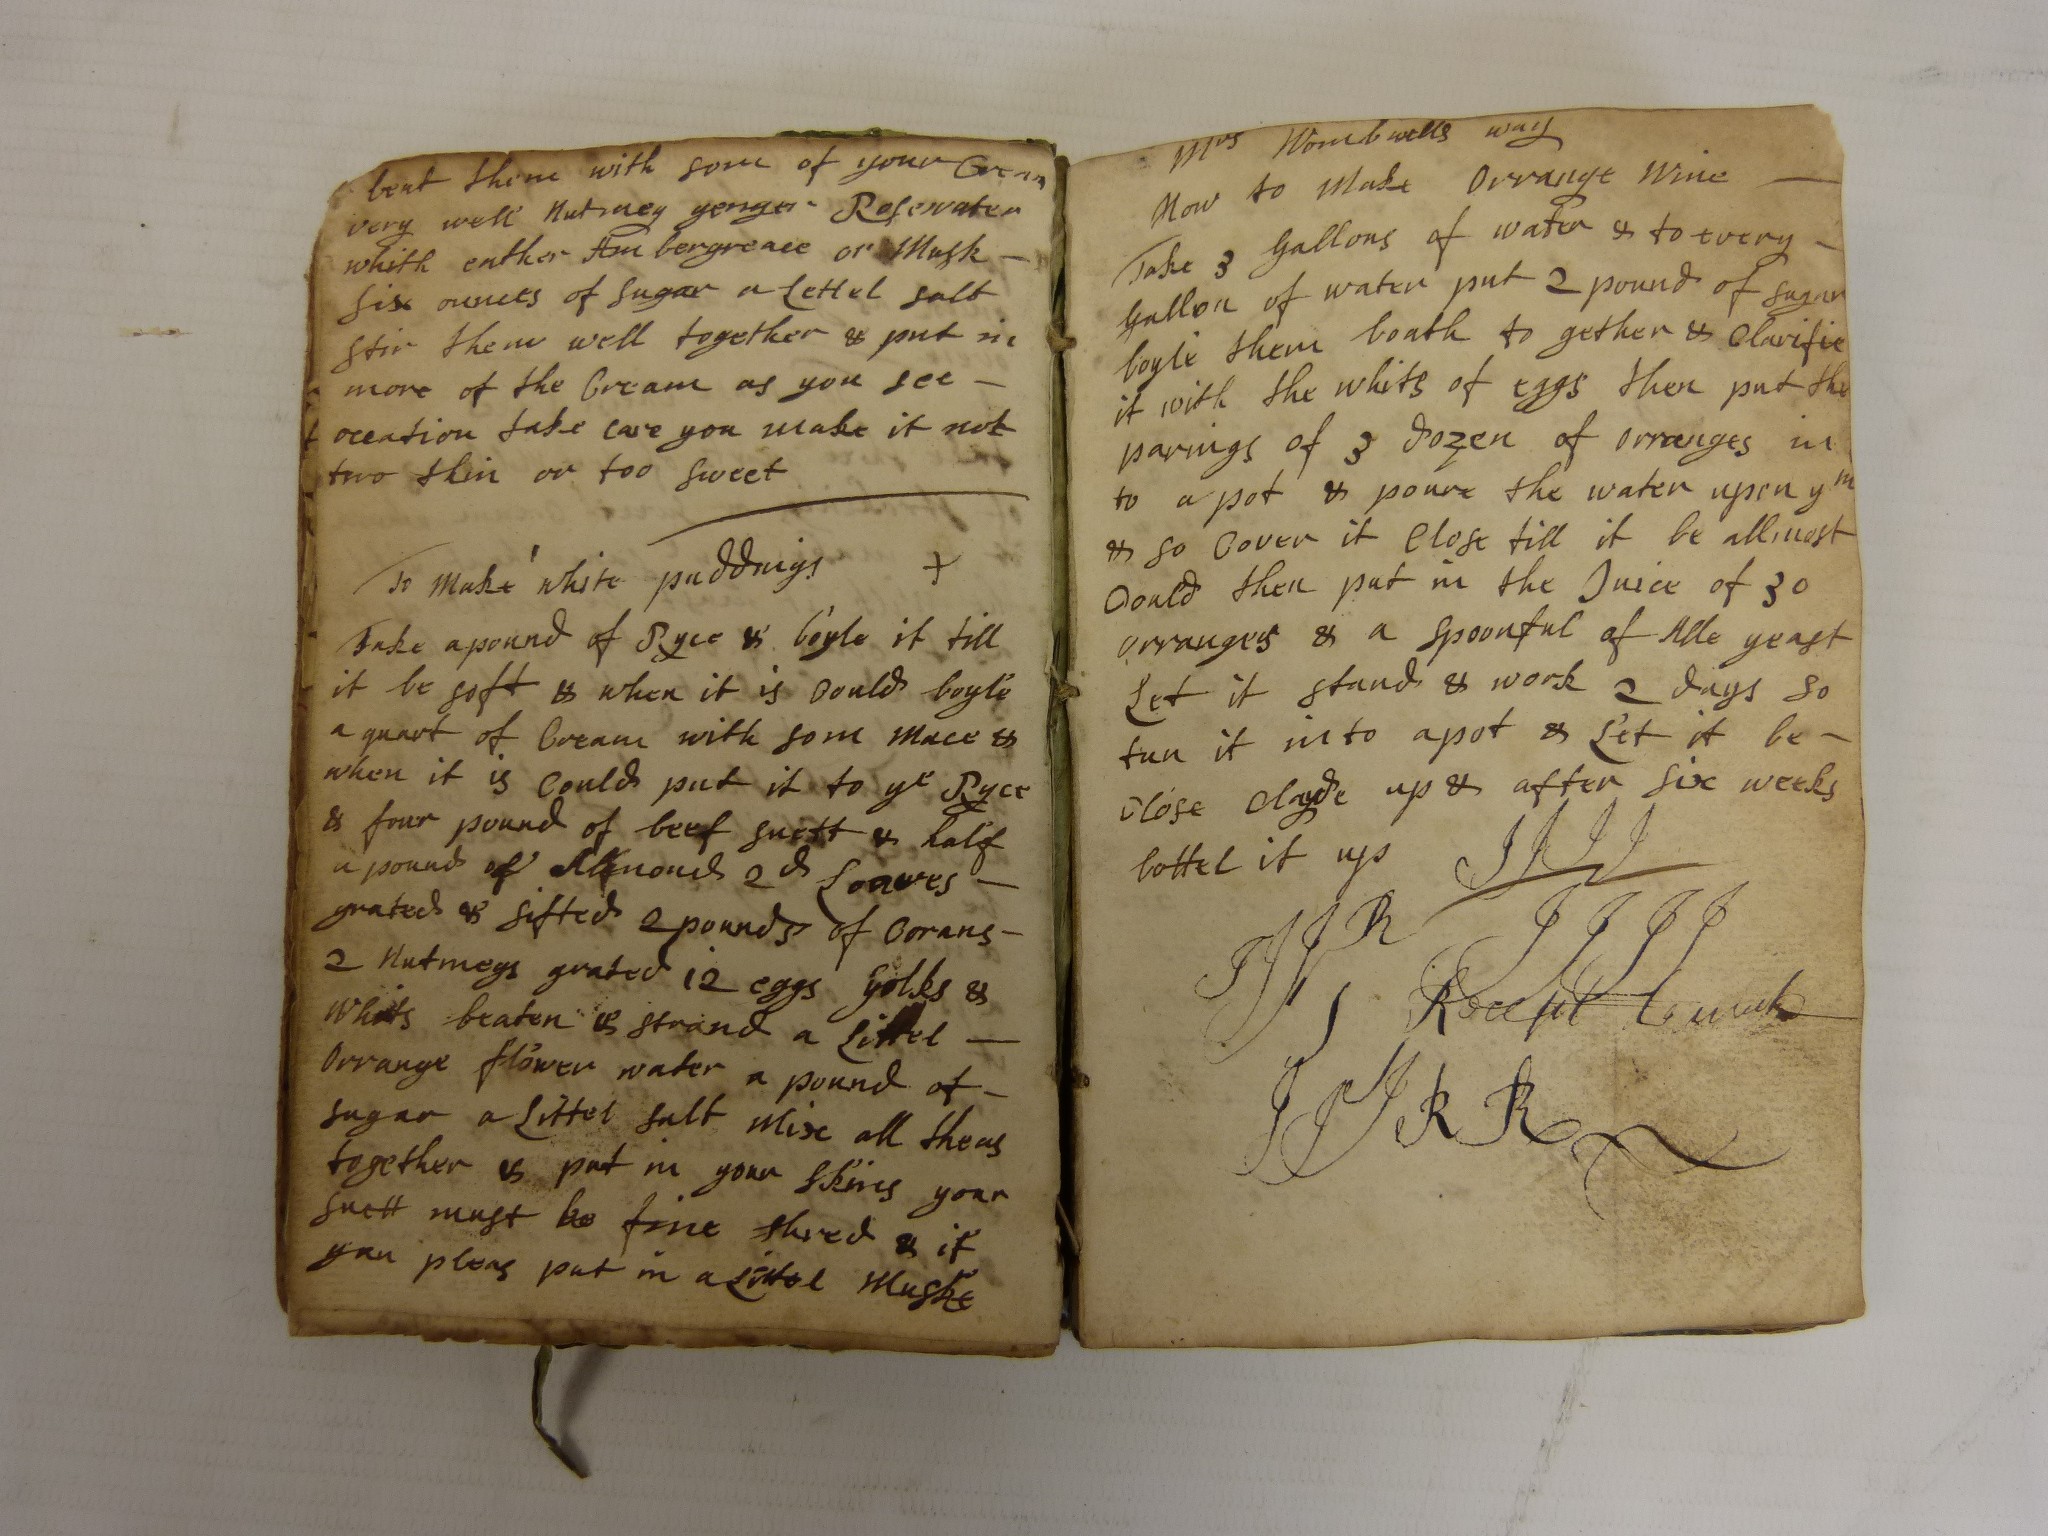 beat them with som of your Cream
very well Nutmeg genger Rosewater
whith eather Ambergreace or Musk –
six ounces of sugar a Lettel salt
stir them well together & put in
more of the Cream as you see –
occation take care you make it not
two thin or too sweet
To Make white puddings +
Take a pound of Ryce & boyle it till
it be soft & when it is Could boyle
a quart of Cream with som Mace &
when it is Could put it to ye Ryce
& four pound of beef suett & half
a pound of Allmonds 2d Loaves –
grated & sifted 2 pounds of Corans –
2 Nutmegs grated 12 eggs yolks &
Whits beaten & straind a Littel –
Orrange flower water a pound of –
sugar a Littel salt Mixe all theas
together & put in your skins your
suett must be fine shred & if
you pleas put in a Littel Muske
Mrs Wombwells way
How to Make Orrange Wine –
Take 3 Gallons of water & to every –
Gallon of water put 2 pound of sugar
boyle them boath to gether & Clarifie
it with the whits of eggs then put the
parings of 3 dozen of orranges in
to a pot & poure the water upon ym
& so Cover it Close till it be allmost
Could then put in the Juice of 30
orranges & a spoonful of Alle yeast
Let it stand & work 2 days so
tun it into a pot & Let it be –
Close Clayde up & after six weeks
bottel it up
J J J J
J J J R J J J J
J Receipt
J J J R R